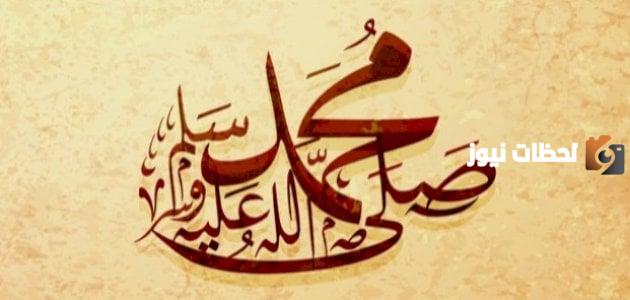 محمد
صلى الله عليه وسلم
لحظات نيوز